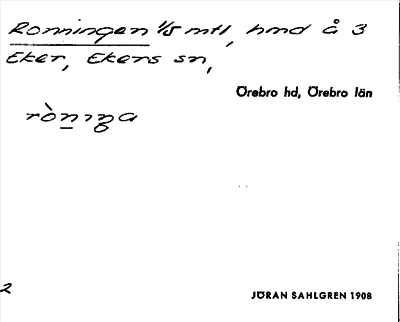 Ronningen 1/8 mtl, hmd å 3
Eker, Ekers sn,
Örebro hd, Örebro län
2
JÖRAN SAHLGREN 1908